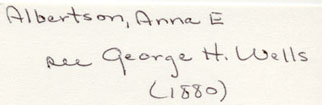 Albertson, Anna E
see George H. Wells
(1880)